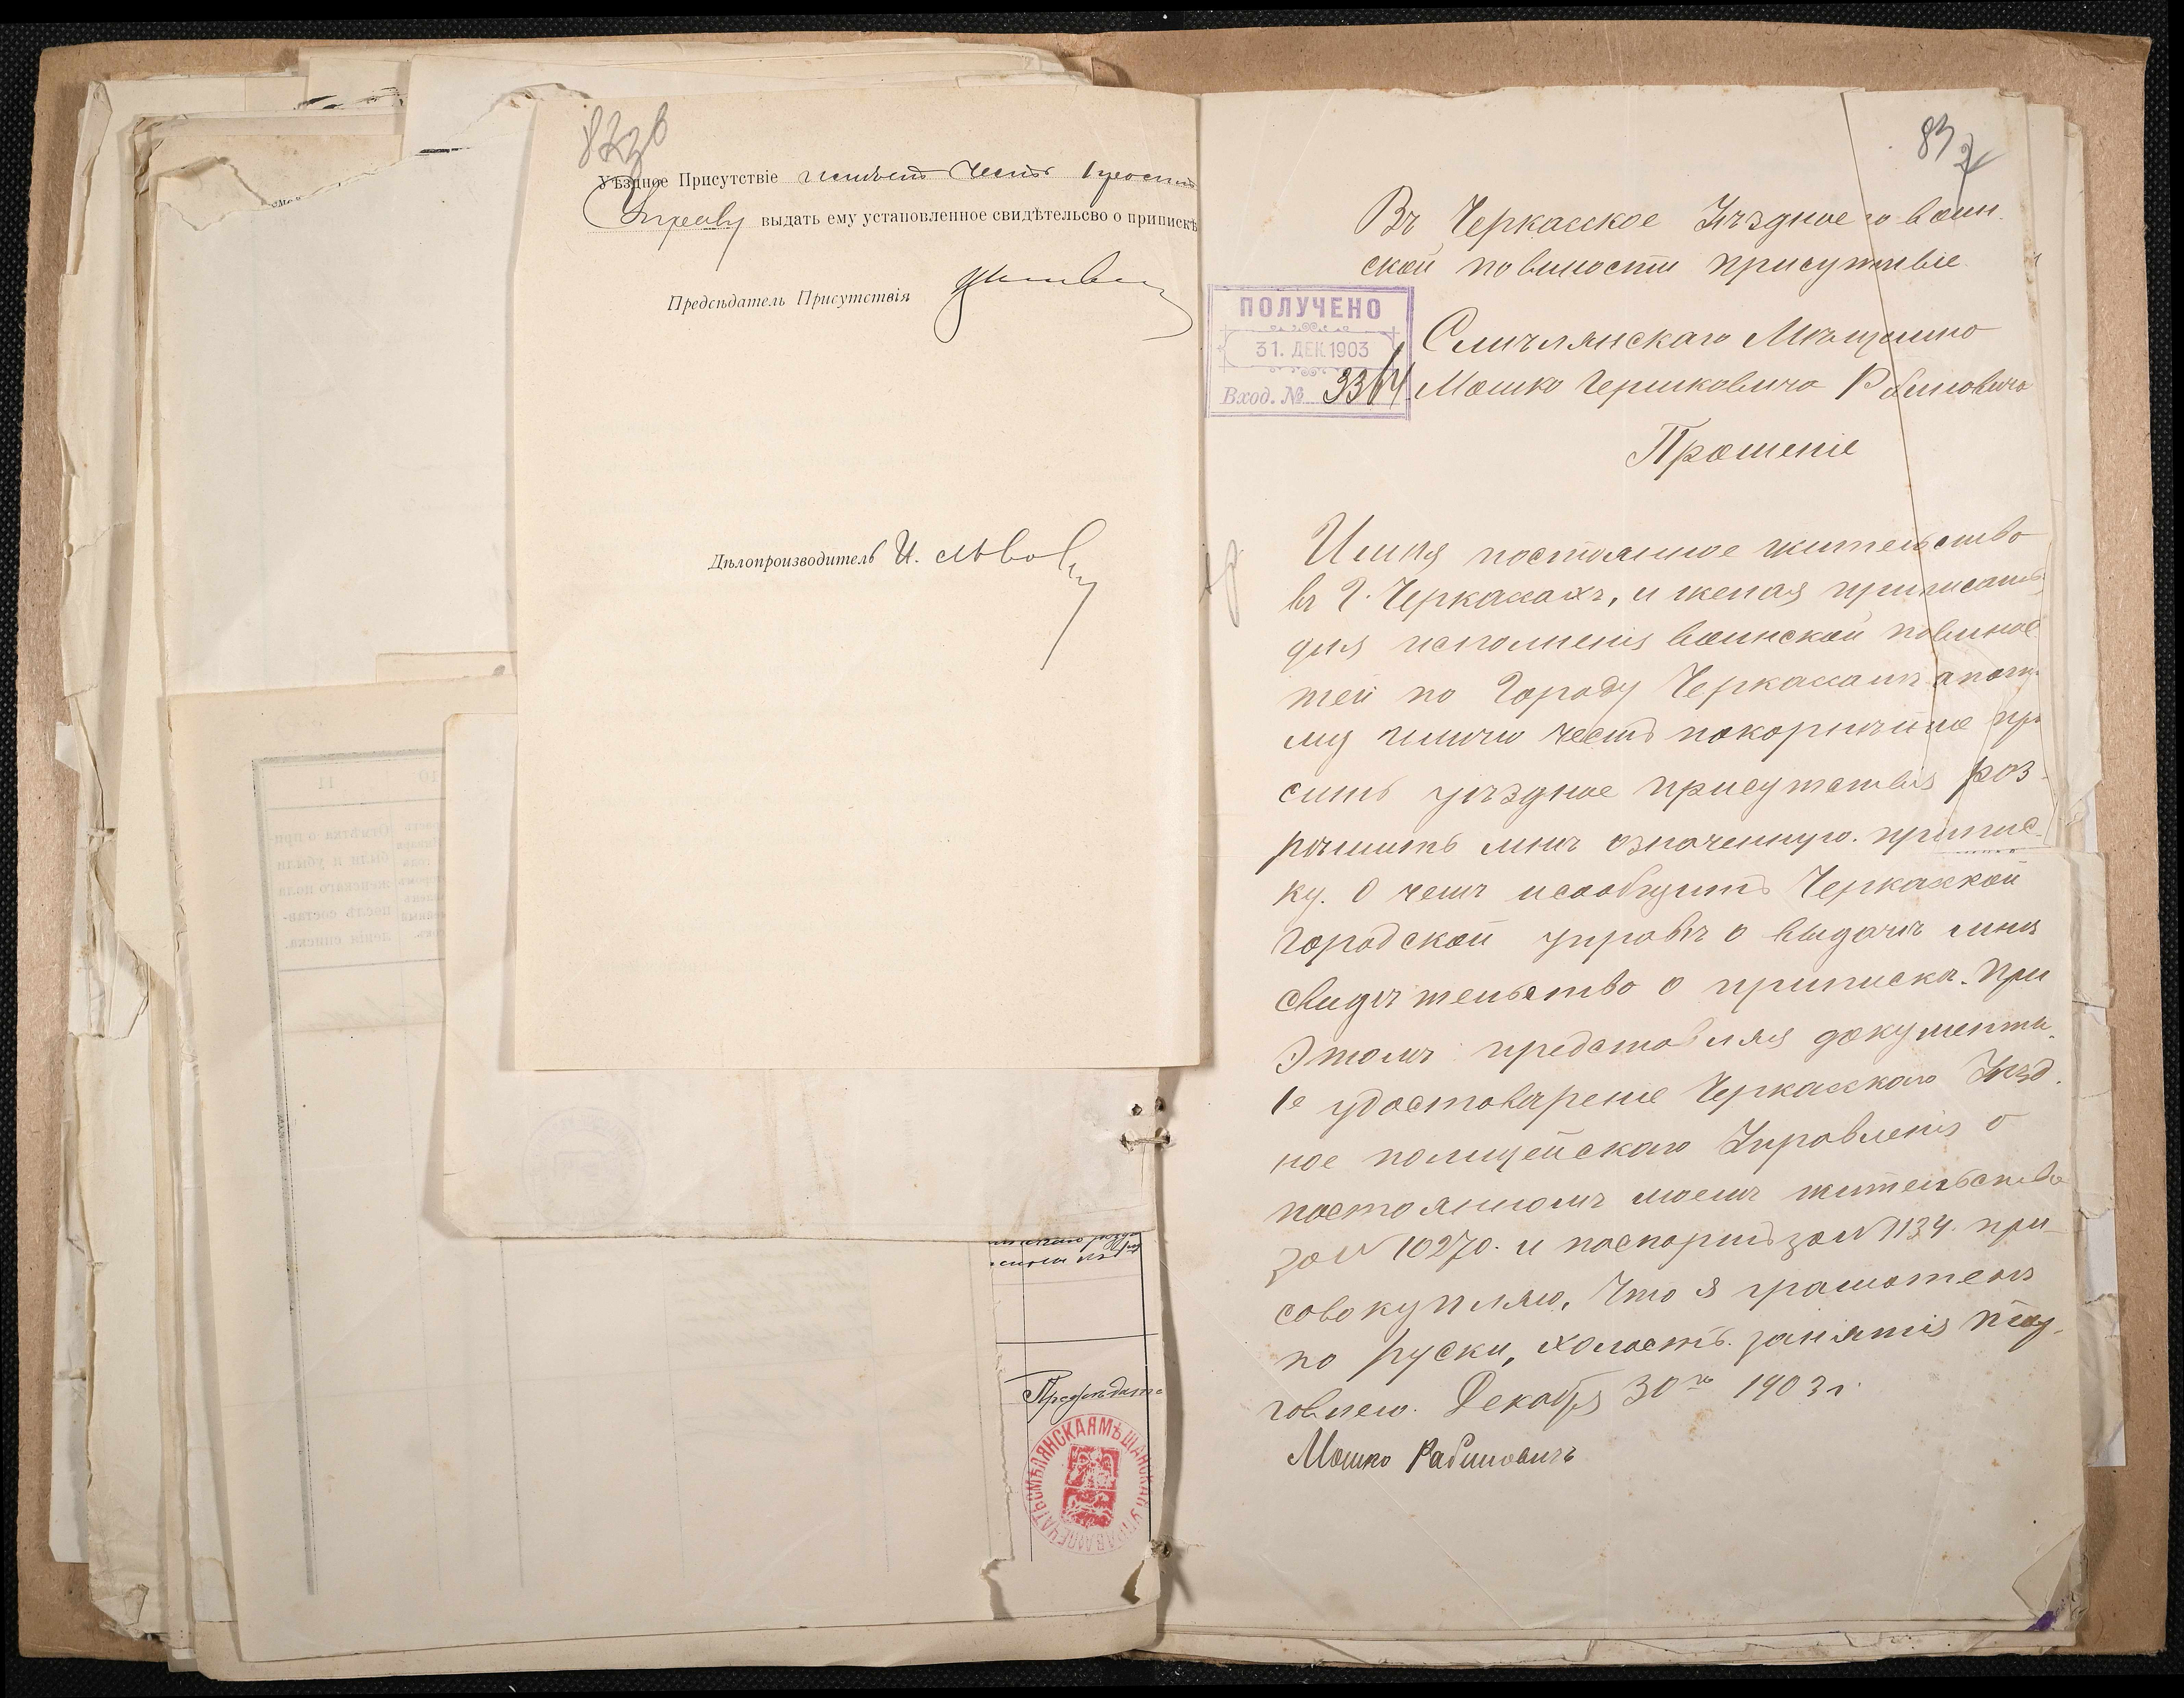 Уѣздное Присутствіе имѣетъ честь проситъ
Управу выдать ему установленное свидѣтельсво о припискѣ
Предсѣдатель Присутствія
Дѣлопроизводитель И.
Предсѣдате
СМѢЛЯНСКАЯ МѢЩАНСКАЯ УПРАВА ПЕЧАТЬ
10
11
83
Въ Черкасское Уѣздное по воин
ской повиности присутствіе
ПОЛУЧЕНО
31. ДЕК. 1903
Вход. № 3364
Смѣлянскаго Мѣщанино
Мошко Гершковича Рабиновича
Прошеніе
Имѣя постоянное жительство
въ Г. Черкассахъ, и желая приписать
для исполненія воинской повинос
тей по Городу Черкассамъ а пото
му имѣю честь покорнѣйше про
сить уѣздное присутствія роз
рѣшить мнѣ означенную. припис
ку. О чемъ и сообщить Черкасской
Городской управѣ о выдачѣ мнѣ
свидѣтельство о приписка. При
Этомъ предстовляя документы.
1е удостоверение Черкасскаго Уѣзд.
ное полицейскаго Управленія о
постоянномъ моемъ жительство
за № 10270. и паспортъ за № 1134. при
совокупляю, что я грамотенъ
по руски, холостъ. занятія тор
говлею. Декабря 30го 1903 г.
Мошко Рабиновичъ